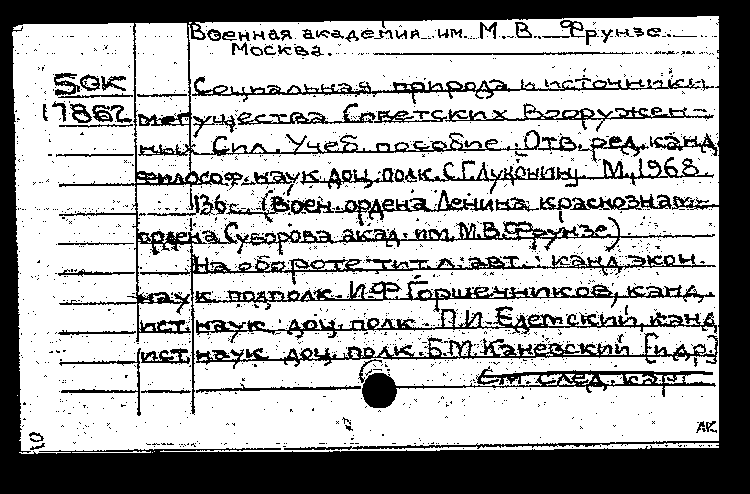 Военная академия им. М. В. Фрунзе.
Москва.
5.ОК
17862
Социальная природа и источники
могущества Советских Вооружен-
ных Сил. Учеб. пособие. Отв. ред. канд.
философ. наук доц. полк. С.Г. Луконин. М., 1968
136 с. (Воен. ордена Ленина краснознам.
ордена Суворова акад. им. М.В.Фрунзе)
На обороте тит. л. авт.: канд. экон.
наук подполк. И.Ф. Горшечников, канд.
ист. наук доц. полк. П.И. Едемский, канд
ист. наук доц. полк. Б.М. Каневский [и др.]
См. след. карт.
АК